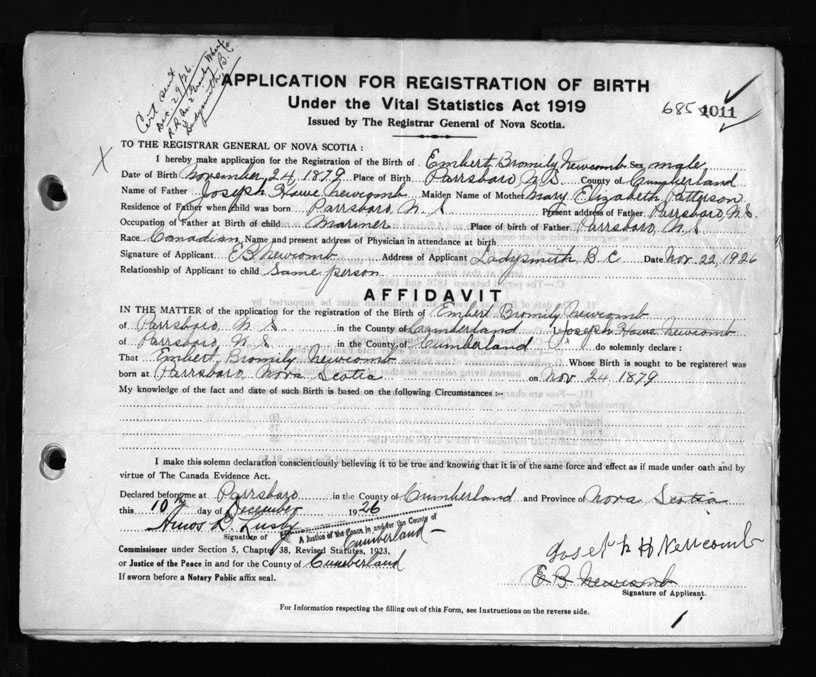 Cert sent
Dec. 29/26.
R.R. No 2
Ladysmith, B.C.
APPLICATION FOR REGISTRATION OF BIRTH
Under the Vital Statistics Act 1919
Issued by The Registrar General of Nova Scotia.
685 1011
X
TO THE REGISTRAR GENERAL OF NOVA SCOTIA:
I hereby make application for the Registration of the Birth of Embert Bromily Newcomb Sex male
Date of Birth November 24, 1879 Place of Birth Parrsboro, N.S. County of Cumberland
Name of Father Joseph Howe Newcomb Maiden Name of Mother Mary Elizabeth Patterson
Residence of Father when child was born Parrsboro, N. S Present address of Father Parrsboro, N.S.
Occupation of Father at Birth of child Mariner Place of birth of Father Parrsboro, N. S
Race Canadian Name and present address of Physician in attendance at birth
Signature of Applicant E B Newcomb Address of Applicant Ladysmith B. C. Date Nov. 22, 1926
Relationship of Applicant to child Same person
AFFIDAVIT
IN THE MATTER of the application for the registration of the Birth of Embert Bromily Newcomb
of Parrsboro, N. S in the County of Cumberland I, Joseph Howe Newcomb
of Parrsboro, N. S. in the County of Cumberland do solemnly declare:
That Embert Bromily Newcomb Whose Birth is sought to be registered was
born at Parrsboro, Nova Scotia on Nov. 24 1879
My knowledge of the fact and date of such Birth is based on the following Circumstances:-
I make this solemn declaration conscientiously believing it to be true and knowing that it is of the same force and effect as if made under oath and by
virtue of The Canada Evidence Act.
Declared before me at Parrsboro in the County of Cumberland and Province of Nova Scotia
this 10th day of December 1926
Amos B. Lusby
Signature of A Justice of the Peace in and for the County of
Cumberland
Commissioner under Section 5, Chapter 38, Revised Statutes, 1923.
or Justice of the Peace in and for the County of Cumberland
If sworn before a Notary Public affix seal.
Joseph H Newcomb
E. B. Newcomb
Signature of Applicant.
For Information respecting the filling out of this Form, see Instructions on the reverse side.
1